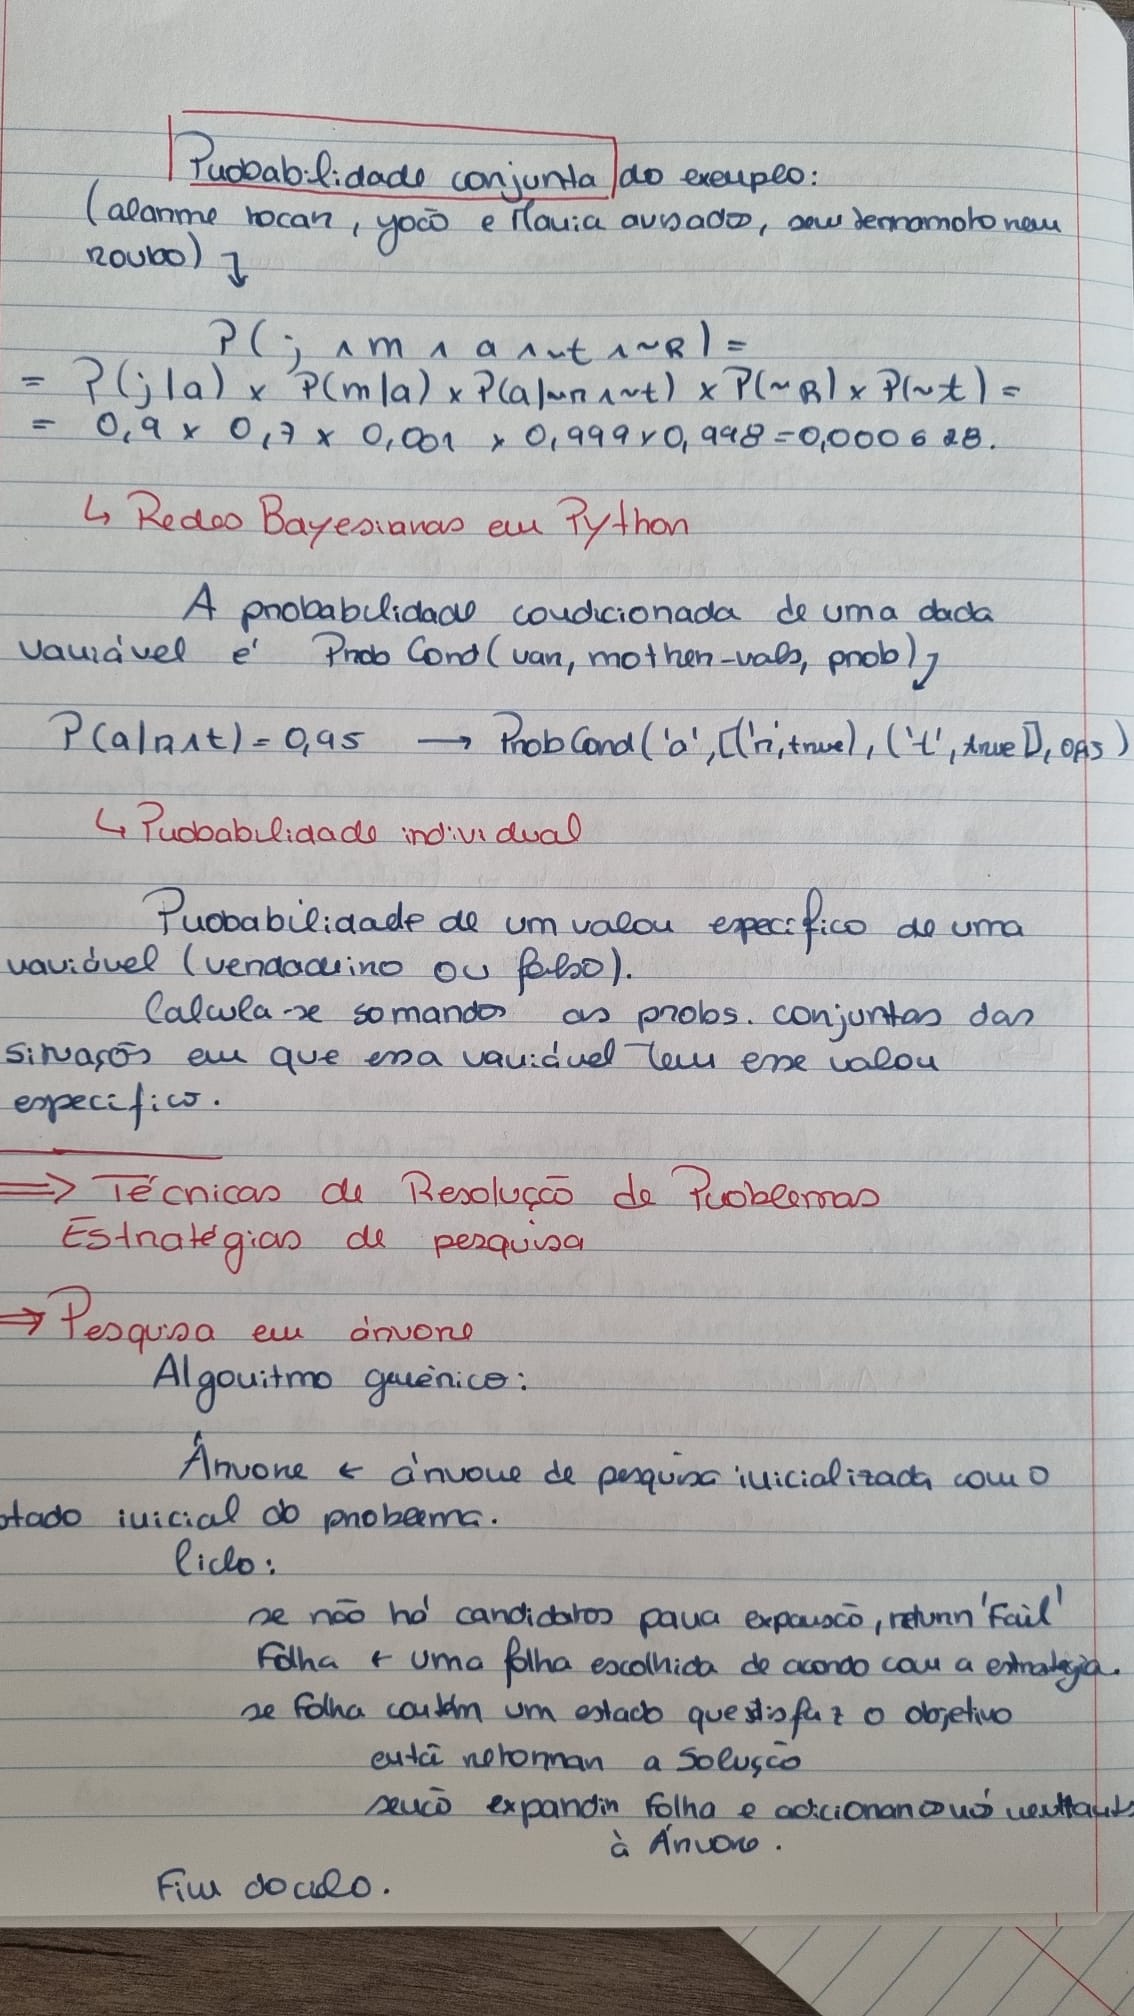 Probabilidade conjunta do exemplo:
(alarme tocar, João e Maria avisados, sem terramoto nem
roubo) ↴
P(j ∧ m ∧ a ∧ ~t ∧ ~R) =
= P(j|a) × P(m|a) × P(a|~r ∧ ~t) × P(~R) × P(~t) =
= 0,9 × 0,7 × 0,001 × 0,999 × 0,998 = 0,000628.
↳ Redes Bayesianas em Python
A probabilidade condicionada de uma dada
variável é Prob Cond(var, mother-vals, prob) ↴
P(a|r∧t) = 0,95 → ProbCond('a', [('r', true), ('t', true)], 0,95)
↳ Probabilidade individual
Probabilidade de um valor específico de uma
variável (verdadeiro ou falso).
Calcula-se somando as probs. conjuntas das
situações em que essa variável tem esse valor
específico.
⇒ Técnicas de Resolução de Problemas
Estratégias de pesquisa
⇒ Pesquisa em árvore
Algoritmo genérico:
Árvore ← árvore de pesquisa inicializada com o
stado inicial do problema.
Ciclo:
se não há candidatos para expansão, return 'Fail'
Folha ← uma folha escolhida de acordo com a estratégia.
se Folha contém um estado que satisfaz o objetivo
então retornar a solução
senão expandir Folha e adicionar os nós resultants
à Árvore.
Fim do ciclo.